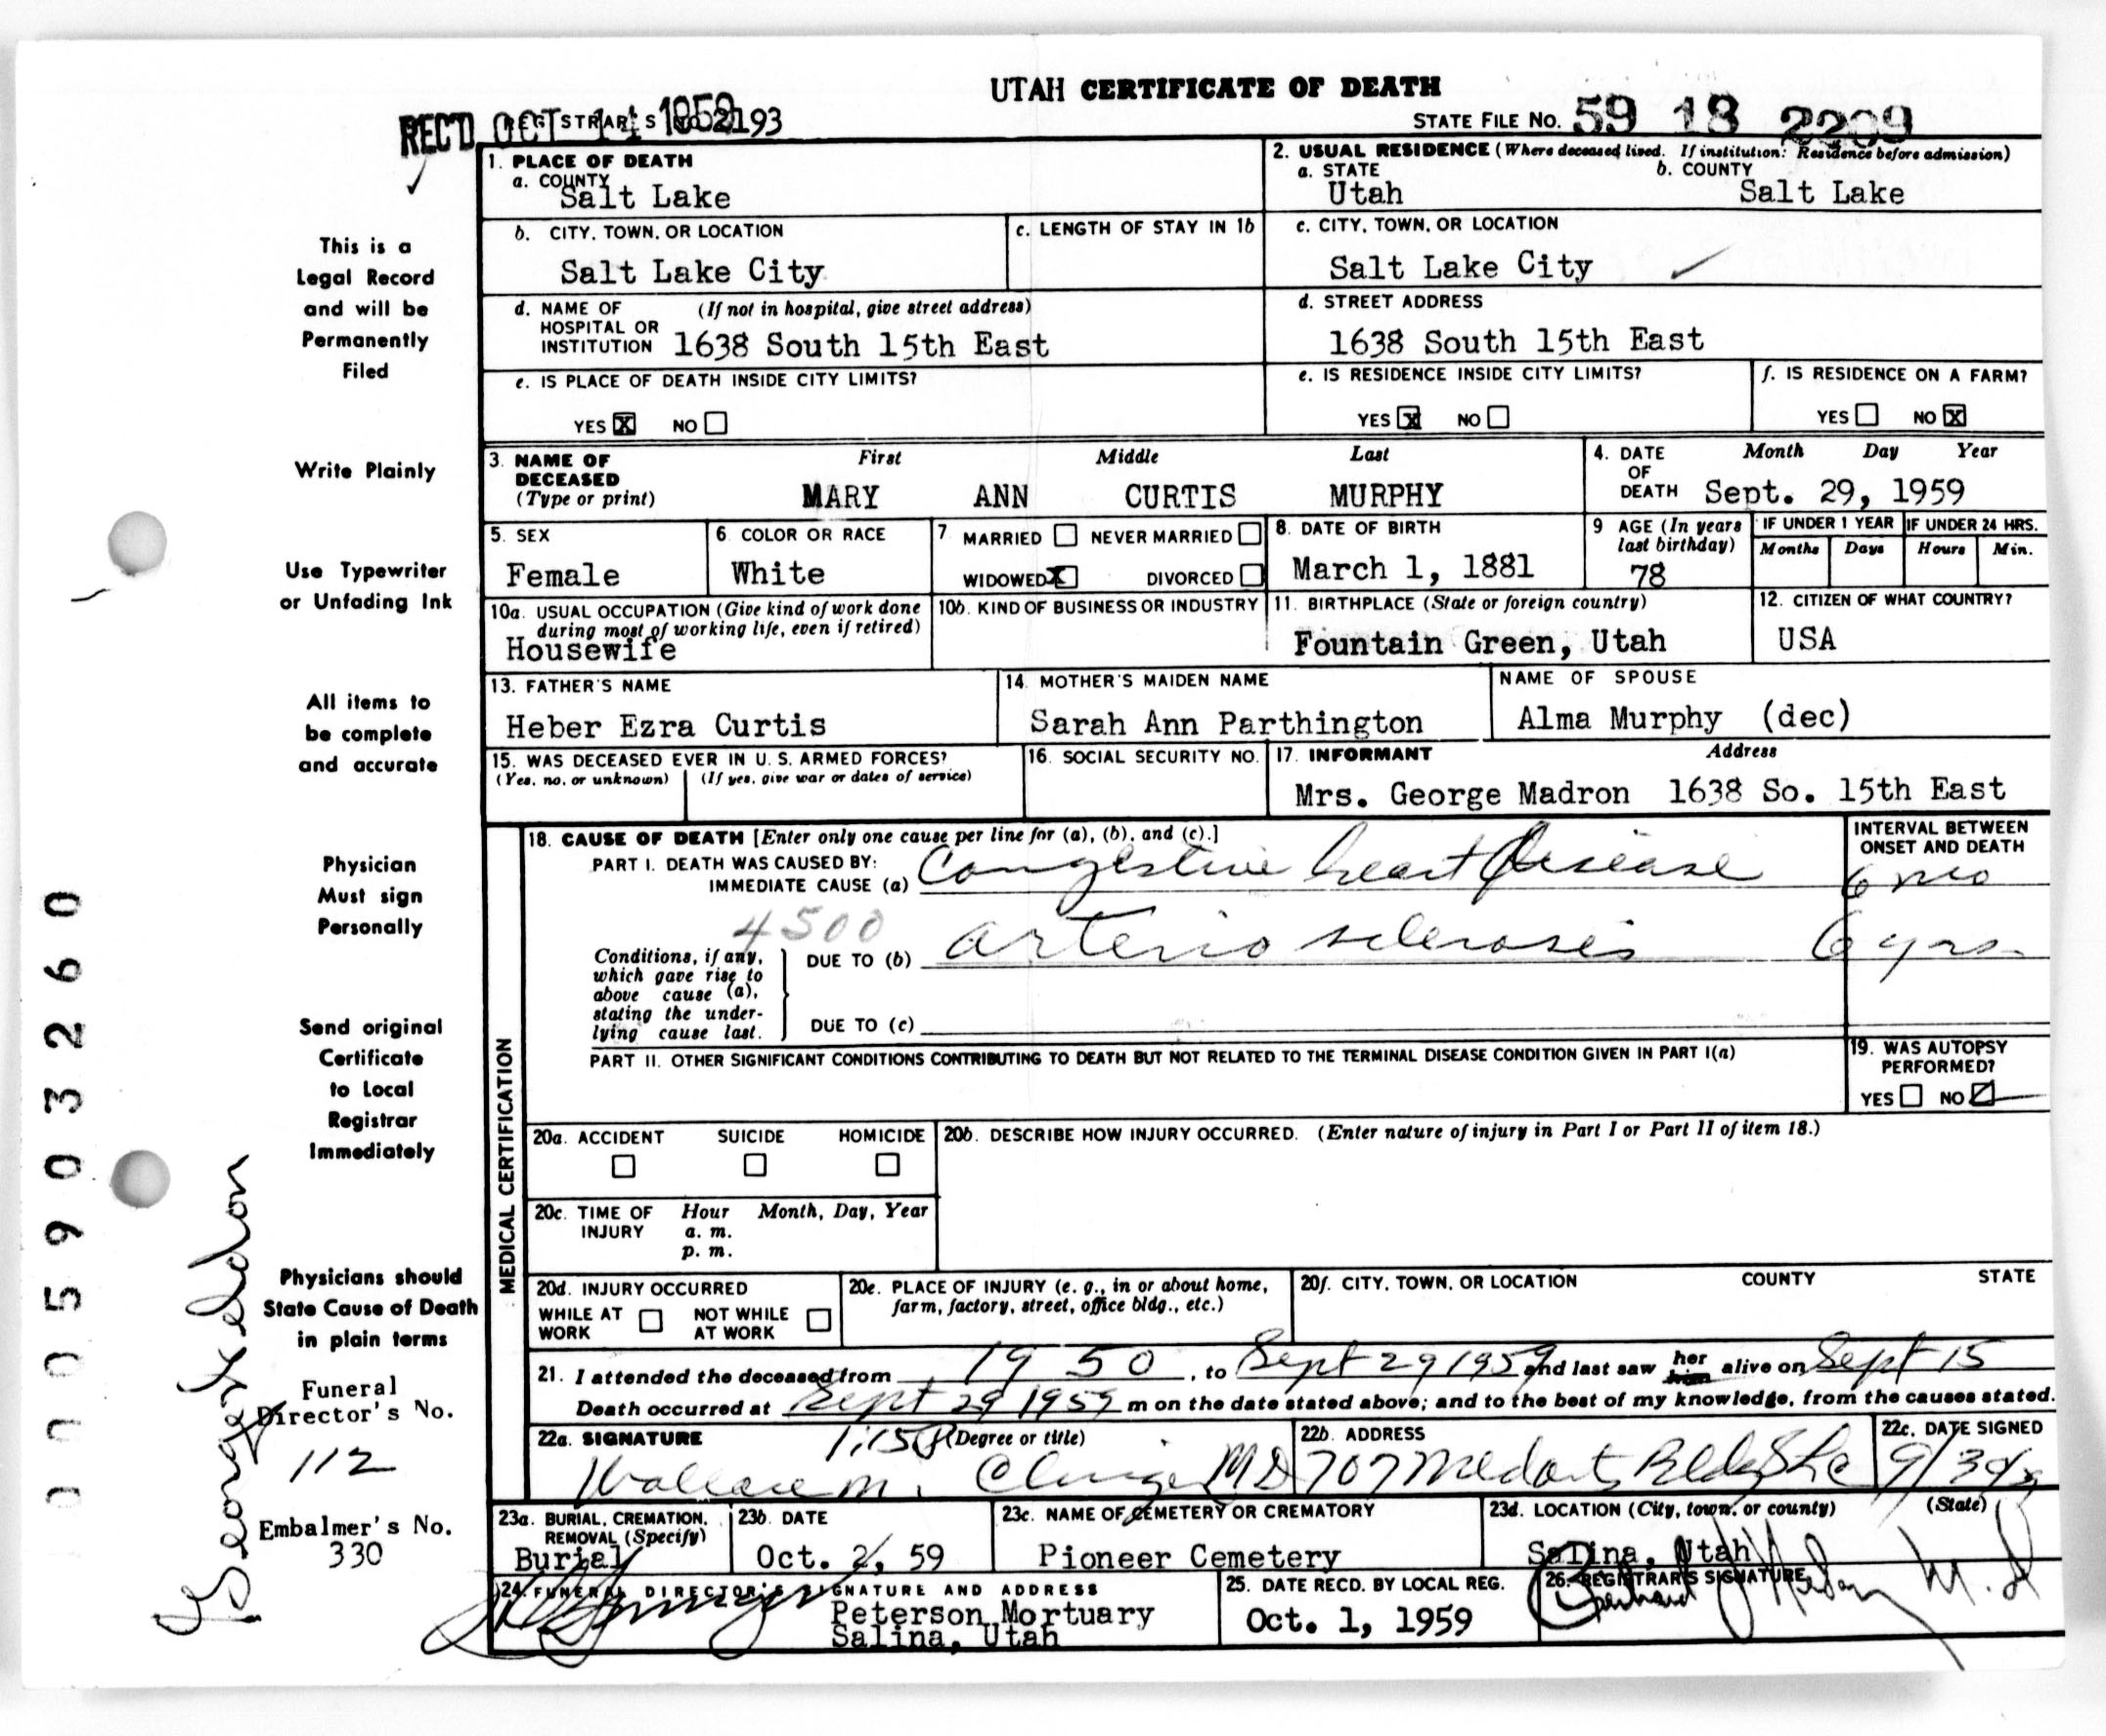 UTAH CERTIFICATE OF DEATH
REC'D OCT 14 1959
REGISTRAR'S 2193
STATE FILE No. 59 18 2209
1. PLACE OF DEATH
a. COUNTY
Salt Lake
2. USUAL RESIDENCE (Where deceased lived. If institution: Residence before admission)
a. STATE b. COUNTY
Utah Salt Lake
b. CITY, TOWN, OR LOCATION
Salt Lake City
c. LENGTH OF STAY IN 1b
c. CITY, TOWN, OR LOCATION
Salt Lake City
d. NAME OF HOSPITAL OR INSTITUTION (If not in hospital, give street address)
1638 South 15th East
d. STREET ADDRESS
1638 South 15th East
e. IS PLACE OF DEATH INSIDE CITY LIMITS?
YES X NO
e. IS RESIDENCE INSIDE CITY LIMITS?
YES X NO
f. IS RESIDENCE ON A FARM?
YES NO X
3. NAME OF DECEASED (Type or print)
First Middle Last
MARY ANN CURTIS MURPHY
4. DATE OF DEATH Month Day Year
Sept. 29, 1959
5. SEX
Female
6. COLOR OR RACE
White
7 MARRIED NEVER MARRIED
WIDOWED X DIVORCED
8. DATE OF BIRTH
March 1, 1881
9 AGE (In years last birthday)
78
IF UNDER 1 YEAR IF UNDER 24 HRS.
Months Days Hours Min.
10a. USUAL OCCUPATION (Give kind of work done during most of working life, even if retired)
Housewife
10b. KIND OF BUSINESS OR INDUSTRY
11. BIRTHPLACE (State or foreign country)
Fountain Green, Utah
12. CITIZEN OF WHAT COUNTRY?
USA
13. FATHER'S NAME
Heber Ezra Curtis
14. MOTHER'S MAIDEN NAME
Sarah Ann Parthington
NAME OF SPOUSE
Alma Murphy (dec)
15. WAS DECEASED EVER IN U. S. ARMED FORCES?
(Yes, no, or unknown) (If yes, give war or dates of service)
16. SOCIAL SECURITY NO.
17. INFORMANT Address
Mrs. George Madron 1638 So. 15th East
18. CAUSE OF DEATH [Enter only one cause per line for (a), (b), and (c).]
PART I. DEATH WAS CAUSED BY:
IMMEDIATE CAUSE (a) Congestive heart disease
INTERVAL BETWEEN ONSET AND DEATH
6 mo
4500
Conditions, if any, which gave rise to above cause (a), stating the underlying cause last.
DUE TO (b) arterio sclerosis 6 yrs
DUE TO (c)
PART II. OTHER SIGNIFICANT CONDITIONS CONTRIBUTING TO DEATH BUT NOT RELATED TO THE TERMINAL DISEASE CONDITION GIVEN IN PART I(a)
19. WAS AUTOPSY PERFORMED?
YES NO
MEDICAL CERTIFICATION
20a. ACCIDENT SUICIDE HOMICIDE
20b. DESCRIBE HOW INJURY OCCURRED. (Enter nature of injury in Part I or Part II of item 18.)
20c. TIME OF INJURY Hour Month, Day, Year
a. m.
p. m.
20d. INJURY OCCURRED
WHILE AT WORK NOT WHILE AT WORK
20e. PLACE OF INJURY (e. g., in or about home, farm, factory, street, office bldg., etc.)
20f. CITY, TOWN, OR LOCATION COUNTY STATE
21. I attended the deceased from 1950, to Sept 29 1959 and last saw her him alive on Sept 15
Death occurred at Sept 29 1959 m on the date stated above; and to the best of my knowledge, from the causes stated.
1:15 P
22a. SIGNATURE (Degree or title)
Wallace M. MD
22b. ADDRESS
707 Med Arts Bldg SLC
22c. DATE SIGNED
23a. BURIAL, CREMATION, REMOVAL (Specify)
Burial
23b. DATE
Oct. 2, 59
23c. NAME OF CEMETERY OR CREMATORY
Pioneer Cemetery
23d. LOCATION (City, town, or county) (State)
Salina, Utah
24. FUNERAL DIRECTOR'S SIGNATURE AND ADDRESS
Peterson Mortuary
Salina, Utah
25. DATE RECD. BY LOCAL REG.
Oct. 1, 1959
26. REGISTRAR'S SIGNATURE
This is a
Legal Record
and will be
Permanently
Filed
Write Plainly
Use Typewriter
or Unfading Ink
All items to
be complete
and accurate
Physician
Must sign
Personally
Send original
Certificate
to Local
Registrar
Immediately
Physicians should
State Cause of Death
in plain terms
Funeral
Director's No.
112
Embalmer's No.
330
George
0005903260